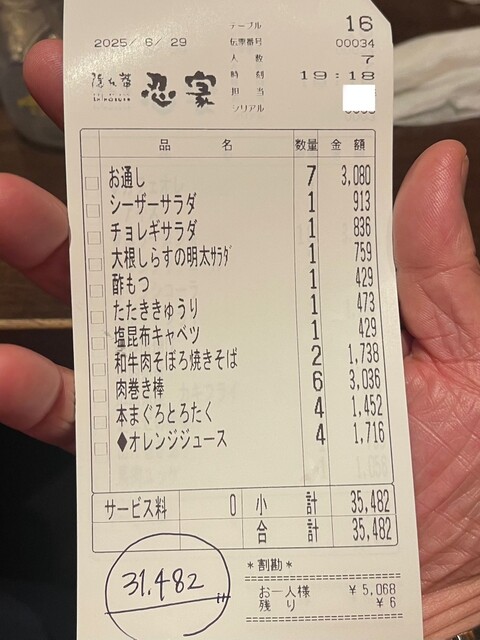 テーブル 16
2025/ 6/ 29 伝票番号 00034
人 数 7
時 刻 19:18
隠れ菴 忍家 担 当
シリアル
品 名 数量 金 額
お通し 7 3,080
シーザーサラダ 1 913
チョレギサラダ 1 836
大根しらすの明太ｻﾗﾀﾞ 1 759
酢もつ 1 429
たたききゅうり 1 473
塩昆布キャベツ 1 429
和牛肉そぼろ焼きそば 2 1,738
肉巻き棒 6 3,036
本まぐろとろたく 4 1,452
◆オレンジジュース 4 1,716
サービス料 0 小 計 35,482
合 計 35,482
31,482
*割勘*
お一人様 ¥5,068
残 り ¥6